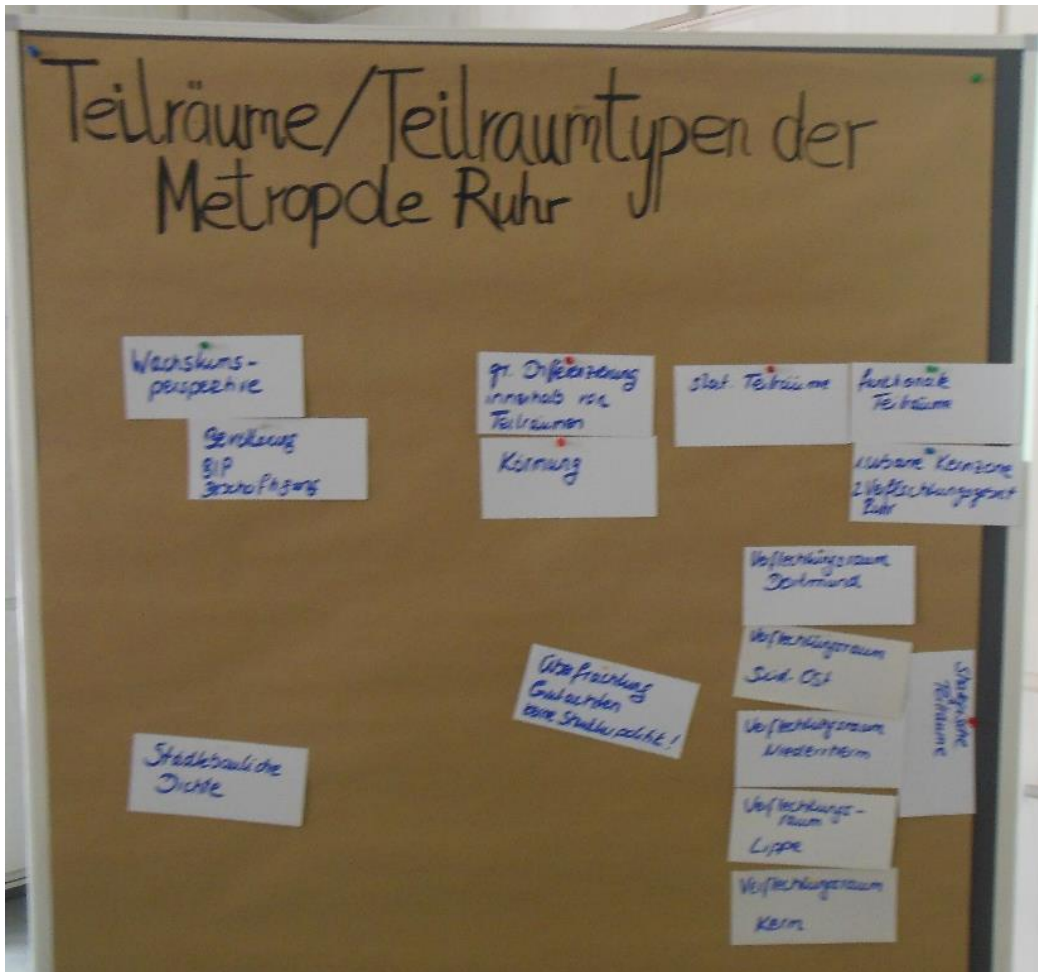 Teilräume/Teilraumtypen der
Metropole Ruhr
Wachstums-
perspektive
Bevölkerung
BIP
Beschäftigung
gr. Differenzierung
innerhalb von
Teilräumen
Körnung
Teilräume
funktionale
Teilräume
1 urbane Kernzone
2 Verflechtungsgebiet
Ruhr
Verflechtungsraum
Dortmund
Verflechtungsraum
Süd-Ost
Verflechtungsraum
Niederrhein
Verflechtungs-
raum
Lippe
Verflechtungsraum
Kern
Teilräume
Überfrachtung
Gutachten
keine Strukturpolitik!
Städtebauliche
Dichte